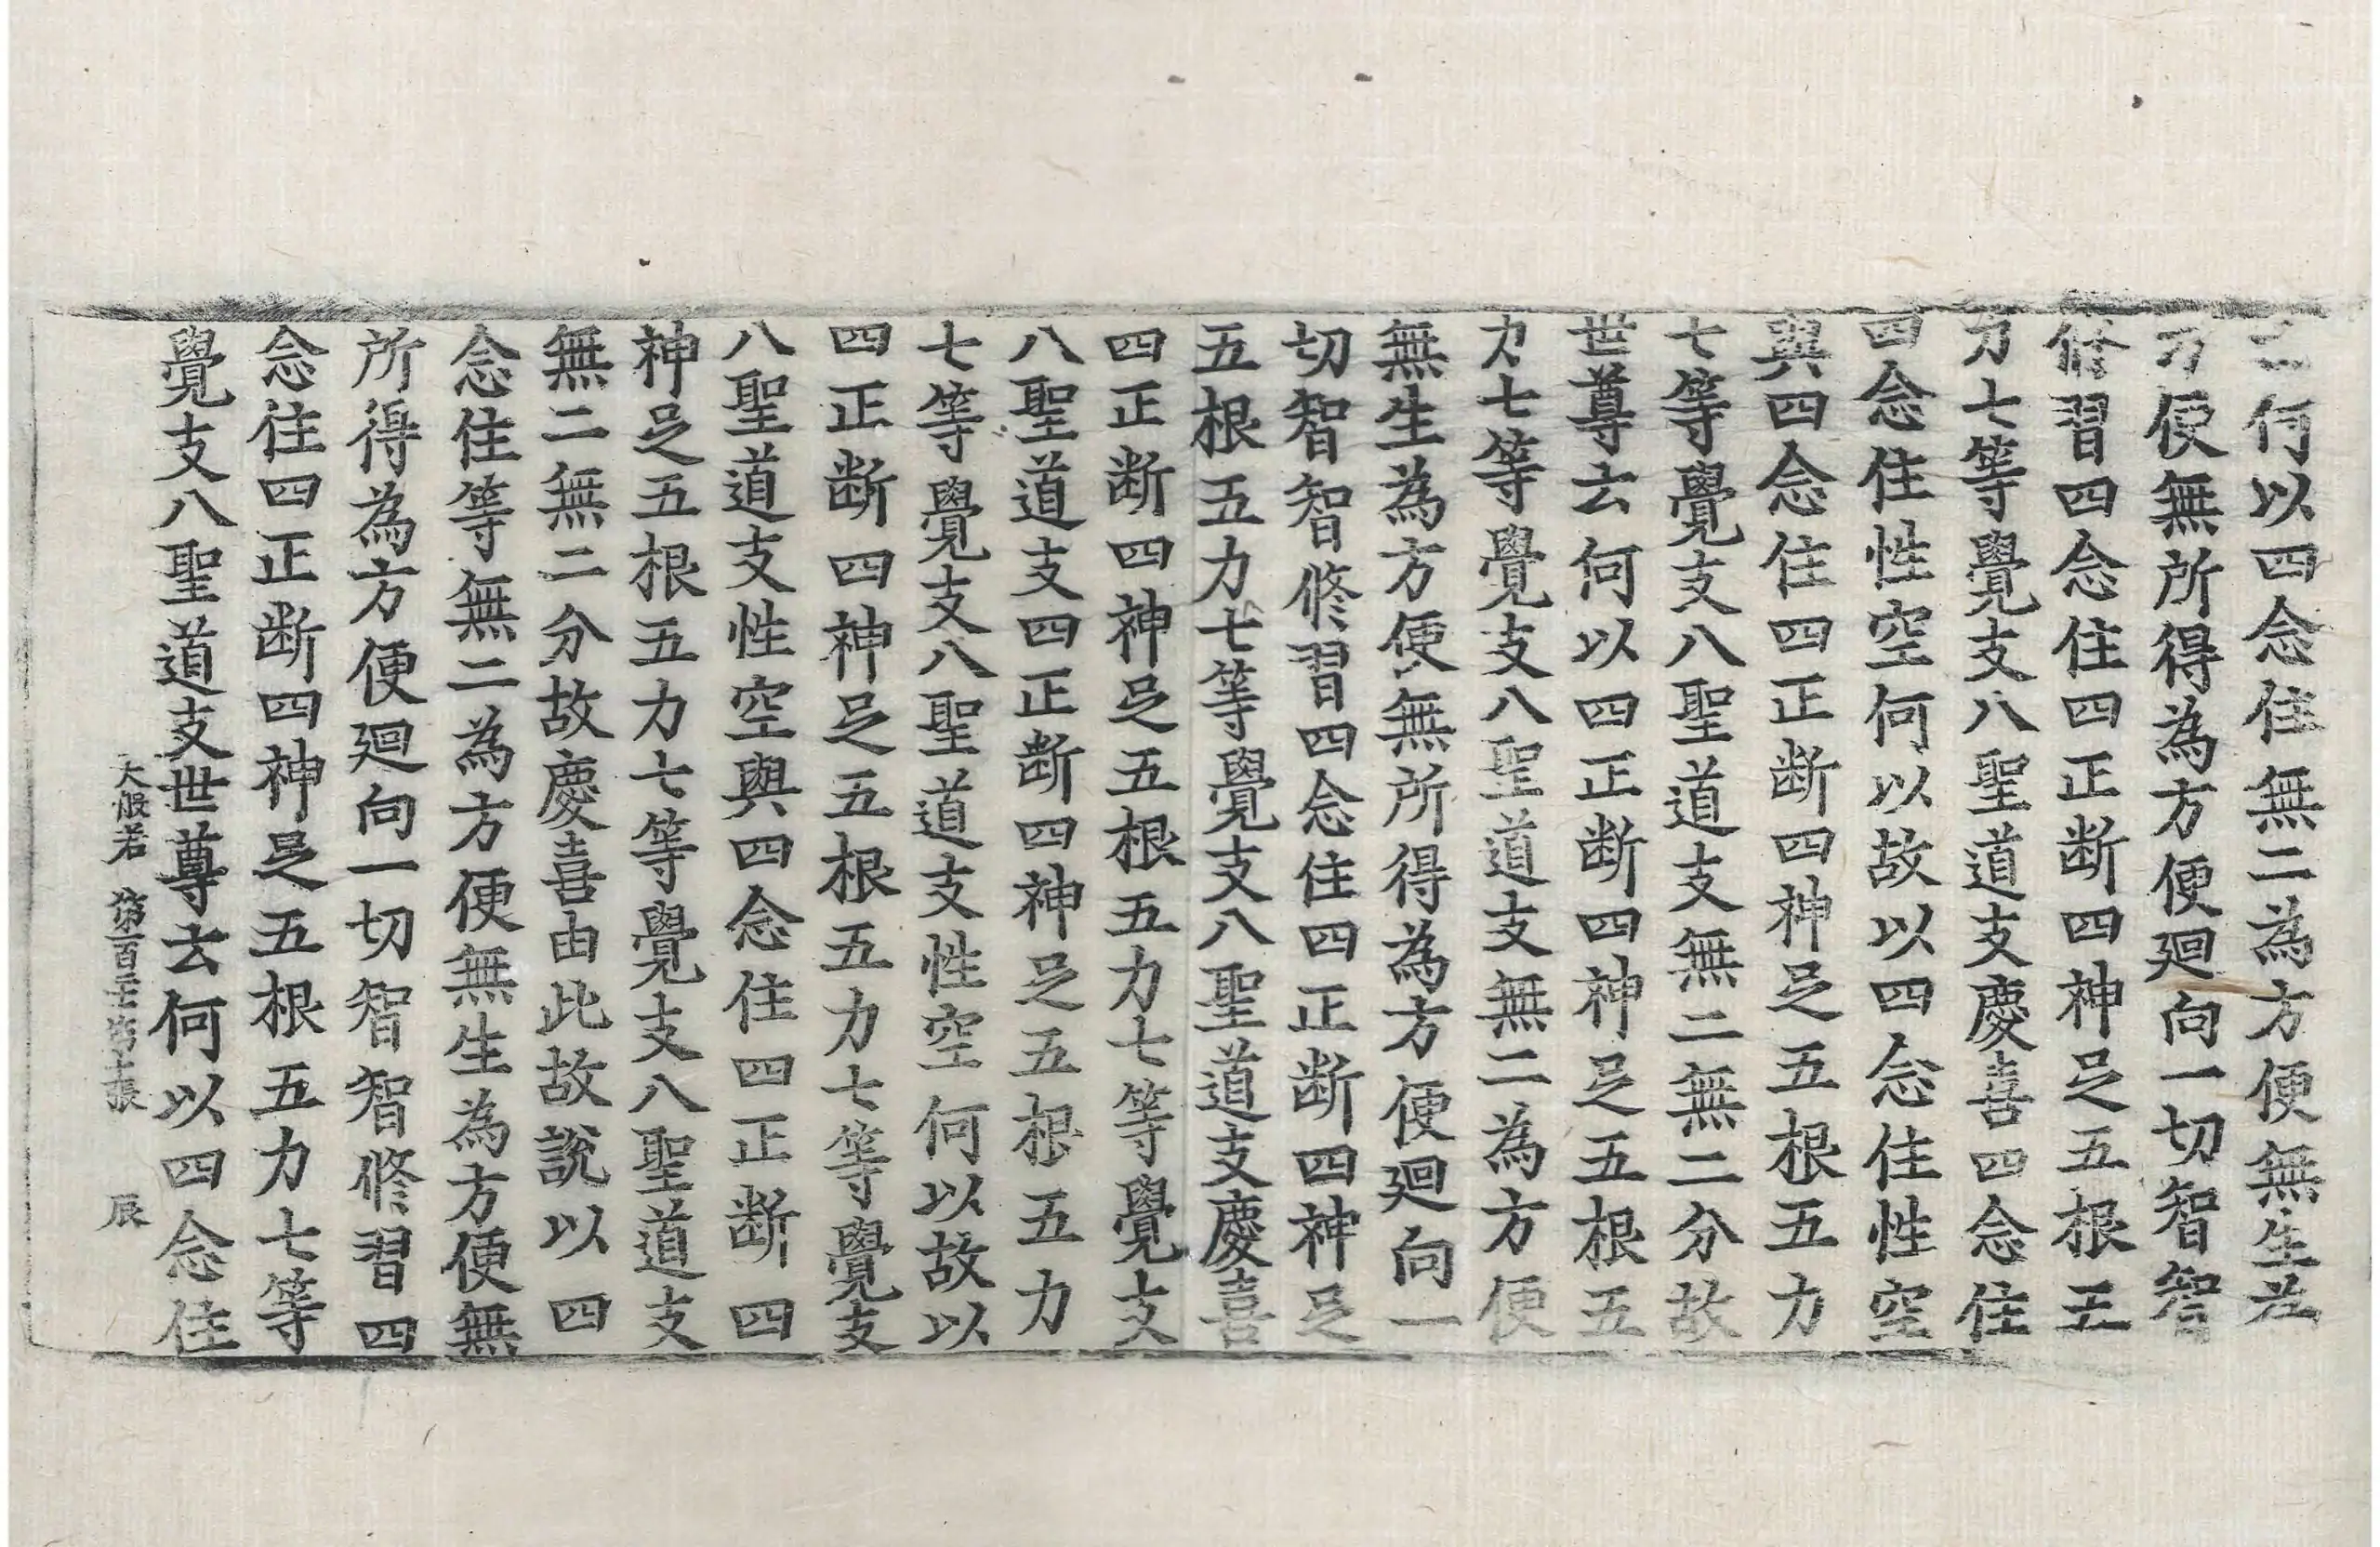 云何以四念住無二為方便無生為
方便無所得為方便廻向一切智智
修習四念住四正断四神足五根五
力七等覺支八聖道支慶喜四念住
四念住性空何以故以四念住性空
與四念住四正断四神足五根五力
七等覺支八聖道支無二無二分故
世尊云何以四正断四神足五根五
力七等覺支八聖道支無二為方便
無生為方便無所得為方便廻向一
切智智修習四念住四正断四神足
五根五力七等覺支八聖道支慶喜
四正断四神足五根五力七等覺支
八聖道支四正断四神足五根五力
七等覺支八聖道支性空何以故以
四正断四神足五根五力七等覺支
八聖道支性空與四念住四正断四
神足五根五力七等覺支八聖道支
無二無二分故慶喜由此故說以四
念住等無二為方便無生為方便無
所得為方便廻向一切智智修習四
念住四正断四神足五根五力七等
覺支八聖道支世尊云何以四念住
大般若 第百 張 辰